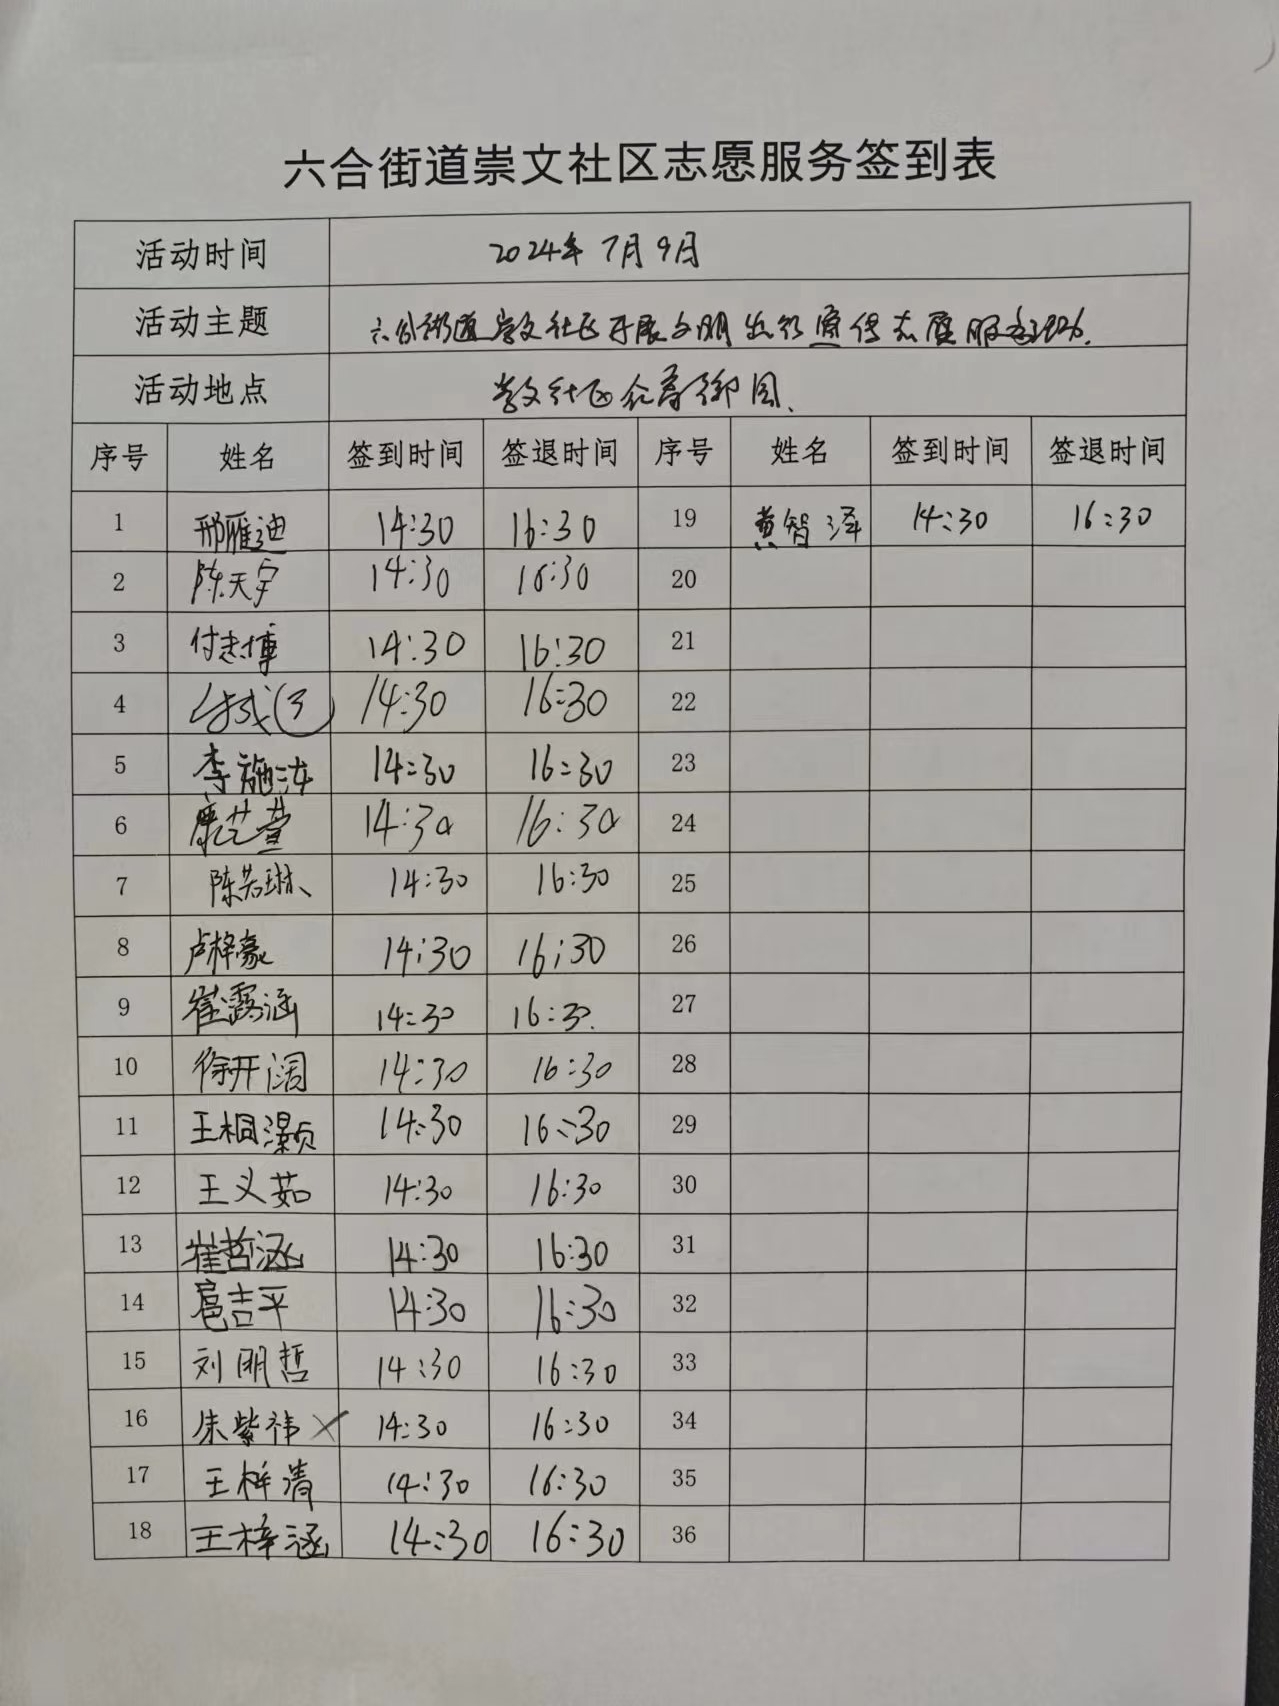 六合街道崇文社区志愿服务签到表
活动时间 2024年7月9日
活动主题 六合街道崇文社区开展文明出行宣传志愿服务活动.
活动地点 崇文社区御园.
序号 姓名 签到时间 签退时间 序号 姓名 签到时间 签退时间
1 邢雁迪 14:30 16:30 19 黄智泽 14:30 16:30
2 陈天宇 14:30 16:30 20
3 付志博 14:30 16:30 21
4 14:30 16:30 22
5 李施汝 14:30 16:30 23
6 康艺萱 14:30 16:30 24
7 陈若琳 14:30 16:30 25
8 卢梓豪 14:30 16:30 26
9 崔露涵 14:30 16:30. 27
10 徐开阔 14:30 16:30 28
11 王桐灏 14:30 16:30 29
12 王义茹 14:30 16:30 30
13 崔哲涵 14:30 16:30 31
14 扈吉平 14:30 16:30 32
15 刘明哲 14:30 16:30 33
16 朱紫祎 × 14:30 16:30 34
17 王梓清 14:30 16:30 35
18 王梓涵 14:30 16:30 36